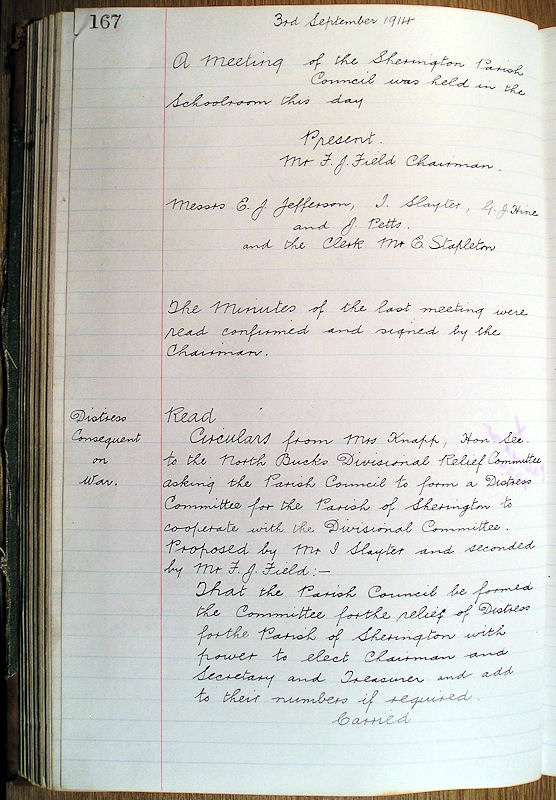 167
3rd September 1914
A Meeting of the Sherington Parish
Council was held in the
Schoolroom this day
Present.
Mr F. J. Field Chairman.
Messrs E. J. Jefferson, I. Slayter, G. J. Hine
and J. Petts.
and the Clerk Mr E. Stapleton
The Minutes of the last meeting were
read confirmed and signed by the
Chairman.
Distress
Consequent
on
War.
Read
Circulars from Mrs Knapp, Hon. Sec.
to the North Bucks Divisional Relief Committee
asking the Parish Council to form a Distress
Committee for the Parish of Sherington to
co-operate with the Divisional Committee.
Proposed by Mr I Slayter and seconded
by Mr F. J. Field:-
That the Parish Council be formed
the Committee for the relief of Distress
for the Parish of Sherington with
power to elect Chairman and
Secretary and Treasurer and add
to their numbers if required.
Carried